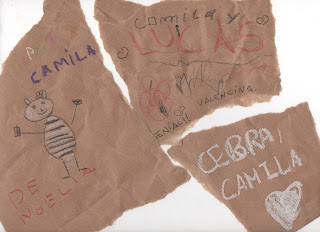 PARA
CAMILA
DE
NOELIA
Camila y
LUCAS
VALENCINA.
CEBRA,
CAMILLA